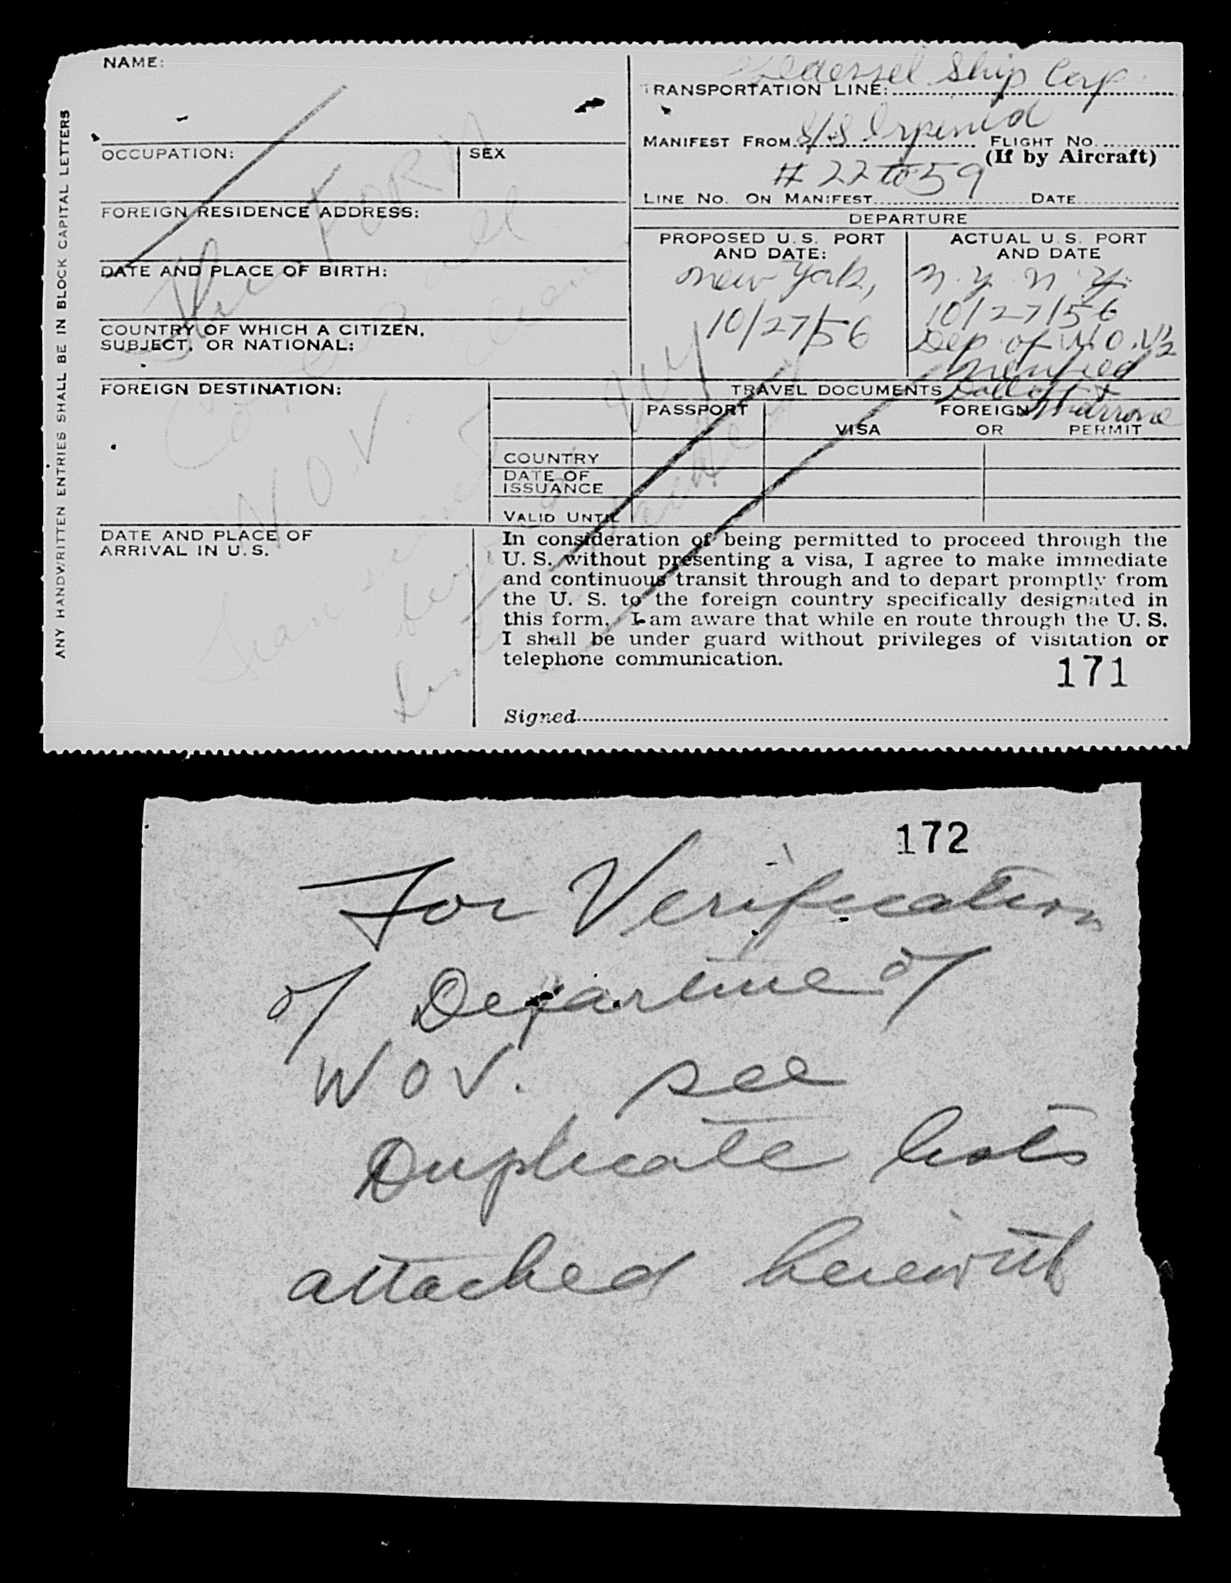 ANY HANDWRITTEN ENTRIES SHALL BE IN BLOCK CAPITAL LETTERS
NAME:
OCCUPATION:
SEX
FOREIGN RESIDENCE ADDRESS:
DATE AND PLACE OF BIRTH:
COUNTRY OF WHICH A CITIZEN,
SUBJECT, OR NATIONAL:
FOREIGN DESTINATION:
DATE AND PLACE OF
ARRIVAL IN U.S.
This FORM
W.O.V
Ship Corp
TRANSPORTATION LINE:
MANIFEST FROM S/S FLIGHT NO.
(If by Aircraft)
# 22 to 59
LINE NO. ON MANIFEST DATE
DEPARTURE
PROPOSED U.S. PORT
AND DATE:
New York,
10/27/56
ACTUAL U.S. PORT
AND DATE
N.Y. N.Y.
10/27/56
Dep of W.O.V's
verified
TRAVEL DOCUMENTS
PASSPORT
VISA
FOREIGN
OR PERMIT
COUNTRY
DATE OF
ISSUANCE
VALID UNTIL
In consideration of being permitted to proceed through the
U. S. without presenting a visa, I agree to make immediate
and continuous transit through and to depart promptly from
the U. S. to the foreign country specifically designated in
this form. I am aware that while en route through the U. S.
I shall be under guard without privileges of visitation or
telephone communication.
171
Signed
172
For Verification
of Departure of
W O V. see
Duplicate lists
attached herewith